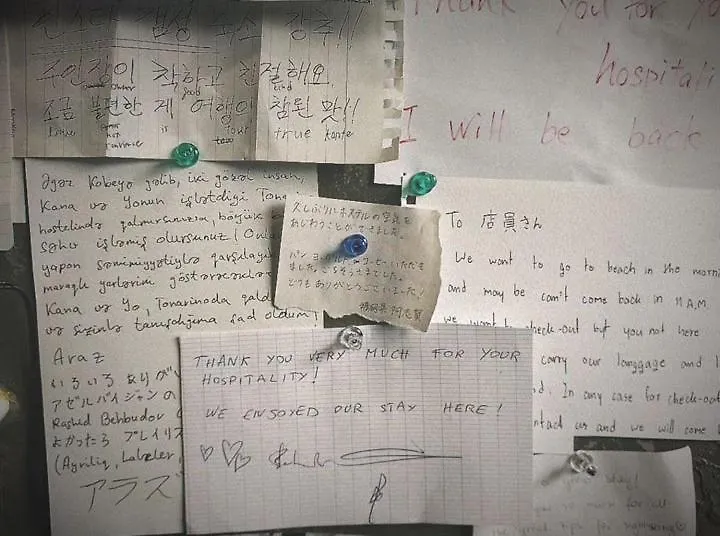 주인장이 착하고 친절해요.
owner good kind
조금 불편한 게 여행의 참된 맛!!
is tour true
Thank you for
hospitali
I will be back
Əgər Kobeyə gəlib, iki gözəl insan,
Kana və Yonun işlətdiyi Ton
hostelində qalmırsınızsa, böyük
səhv işləmiş olursunuz! Onl
yapon səmimiyyətiylə qarşılayı
maraqlı yerlərini göstərəcəklər
Kana və Yo, Tonarinoda qald
və sizinlə tanışlığıma şad oldum!
Araz
いろいろありが
アゼルバイジャンの
Rashid Behbudov
よかったら プレイリス
(Ayrılıq, Lalələr,
アラズ
久しぶりにホステルの空気を
あじわうことができました。
パン ヨーグルト コーヒーいただき
ました。ごちそうさまでした。
とてもありがとうございました!
THANK YOU VERY MUCH FOR YOUR
HOSPITALITY!
WE ENJOYED OUR STAY HERE!
To 店員さん
We want to go to beach in the morn
and may be can't come back in 11 A.M.
we want to check-out but you not here
carry our langgage and
nd. In any case for check-out
ntact us and we will come
stay!
for all